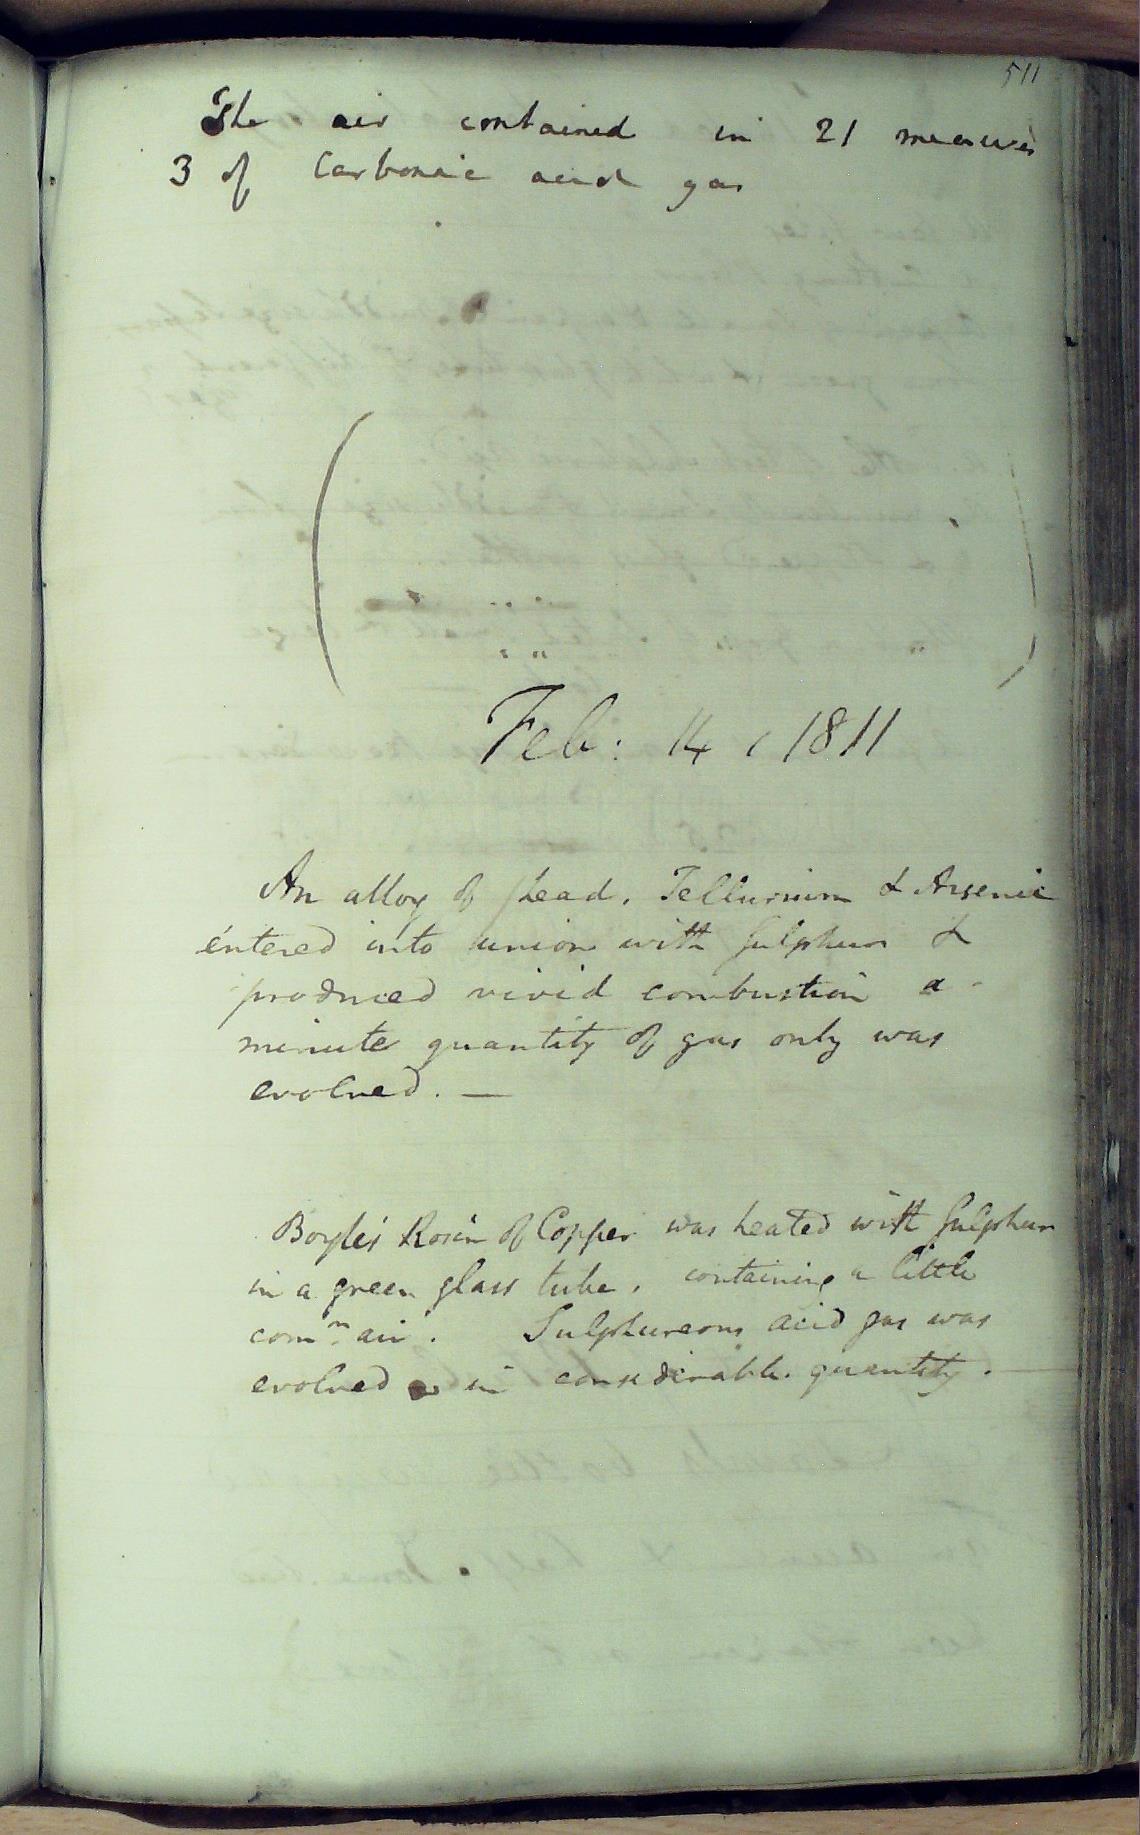 511
The air contained in 21 measures
3 of Carbonic acid gas
Feb: 14, 1811
An alloy of Lead, Tellurium & Arsenic
entered into union with Sulphur &
produced vivid combustion a
minute quantity of gas only was
evolved. —
Boyle's Rosin of Copper was heated with Sulphur
in a green glass tube, containing a little
comⁿ air. Sulphureous acid gas was
evolved in considerable quantity. —